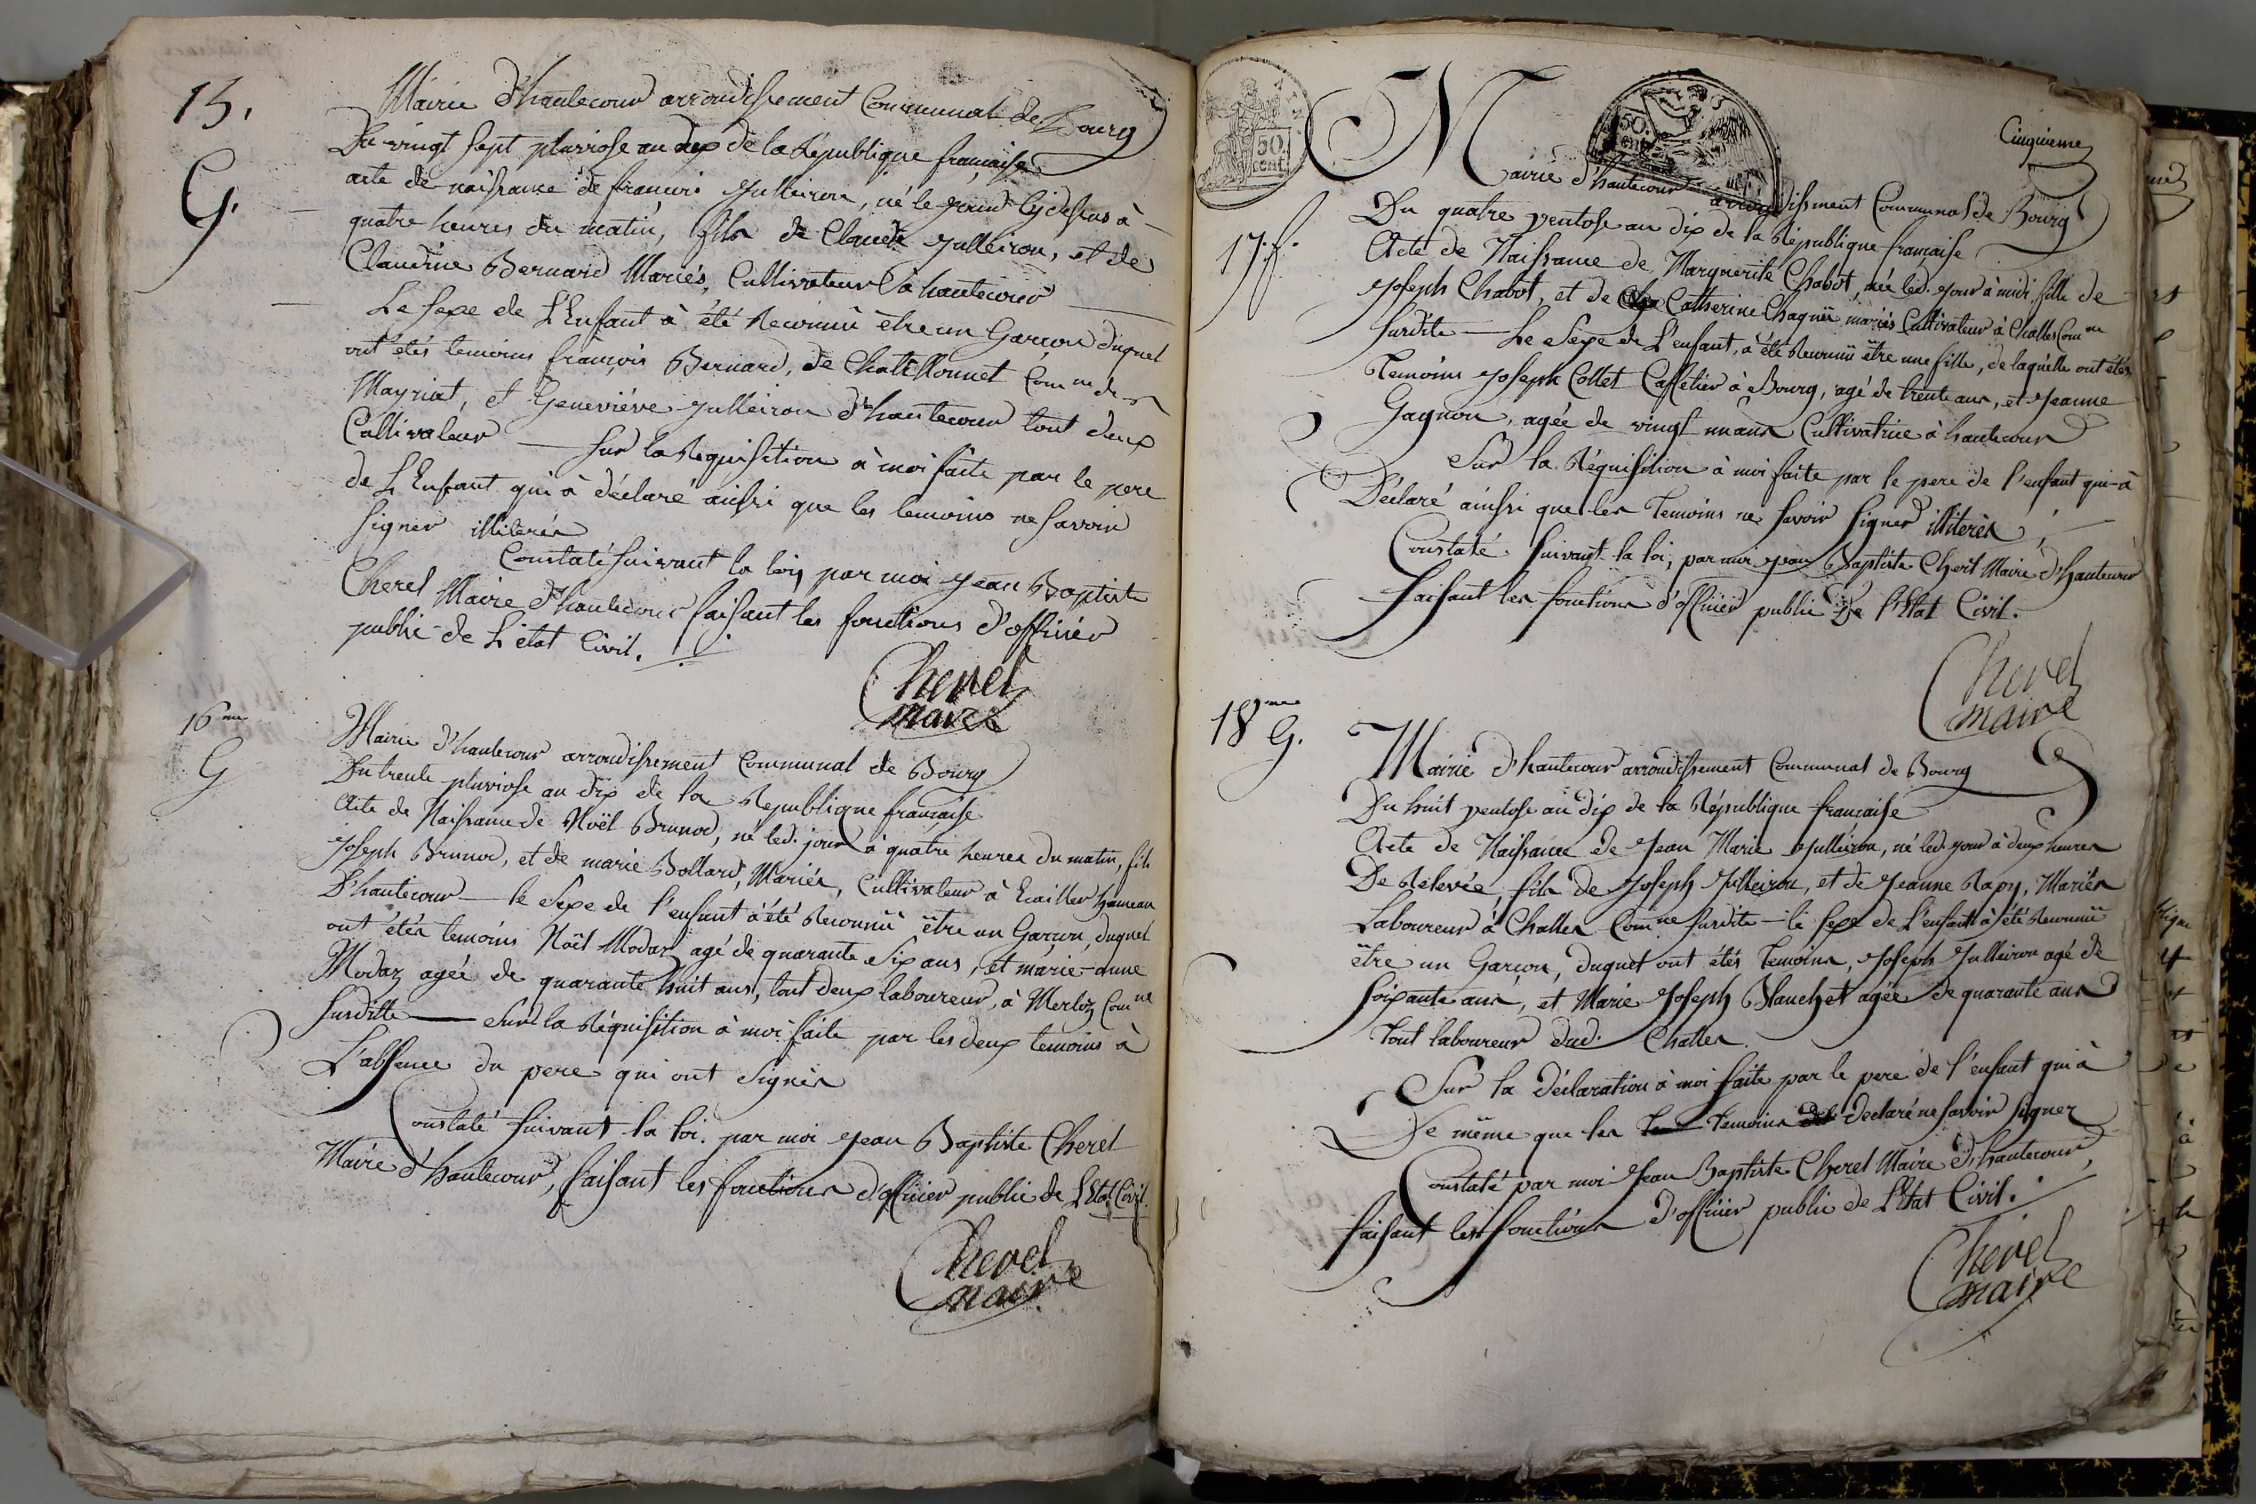 15.
G.
Mairie d'hautecour arrondissement Communal de Bourg
Du vingt sept pluviose an dix de la République française
acte de naissance de françois Julleiron, né le jour cydessus à
quatre heures du matin, fils de Claude Julleiron, et de
Claudine Bernard Mariés, Cultivateur à hautecour
Le sexe de L'Enfant à été Reconnû être un Garçon duquel
ont étés temoins françois Bernard, de Chatillonnet Com ne de
Mayriat, et Geneviéve Julleiron d'hautecour tout deux
Cultivateur — Sur la Requisition à moi faite par le pere
de L'Enfant qui à déclaré ainssi que les temoins ne savoir
signer illiterés
Constaté suivant la loi, par moi Jean Baptiste
Cherel Maire d'hautecour faisant les fonctions d'officier
public de L'état Civil.
Cherel
maire
16me
G
Mairie d'hautecour arrondissement Communal de Bourg
Du trente pluviose an dix de la Republique française
Acte de Naissance de Noël Brunod, né led. jour à quatre heures du matin, fils
Joseph Brunod, et de marie Bollard, Mariés, Cultivateur à hameau
D'hautecour — le sexe de l'enfant à été Reconnû être un Garçon, duquel
ont étés temoins Noël Modaz agé de quarante six ans, et marie-anne
Modaz agée de quarante huit ans, tout deux laboureur, à Merloz Com ne
susditte — Sur la Réquisition à moi faite par les deux temoins à
L'absence du pere qui ont signés
Constaté suivant la loi. par moi Jean Baptiste Cherel
Maire d'hautecour, faisant les fonctions d'officier public de L'Etat Civil.
Cherel
maire
50
CENT.
50.
Cinquieme
17. f.
Mairie d'hautecour arrondissment Communal de Bourg
Du quatre ventose an dix de la République française
Acte de Naissance de Marguerite Chabot, née led. jour à midi fille de
Joseph Chabot, et de Catherine Chagnü mariés Cultivateur à Challes Com ne
susdite — Le Sexe de L'enfant, à été Reconnû être une fille, de laquelle ont étés
Temoins Joseph Collet Caffetier à Bourg, agé de trente ans, et Jeanne
Gagnon, agée de vingt un ans Cultivatrice à hautecour
Sur la Réquisition à moi faite par le pere de l'enfant qui à
Déclaré ainssi que les Temoins ne savoir signer illiterés,
Constaté suivant la loi, par moi Jean Baptiste Cherel Maire d'hautecour
faisant les fonctions d'officier public De l'Etat Civil.
Cherel
maire
18me G.
Mairie d'hautecour arrondissement Communal de Bourg
Du huit ventose an dix de la République française
Acte de Naissance de Jean Marie Julleiron, né led. jour à deux heures
De Relevée, fils de Joseph Julleiron, et de Jeanne Rapy, Mariés
Laboureur à Challes Com ne susdite — le sexe de L'enfant à été Reconnû
être un Garçon, duquel ont étés Temoins, Joseph Julleiron agé de
soixante ans, et Marie Joseph Blanchet agée de quarante ans
tout laboureur dud. Challes.
Sur la Déclaration à moi faite par le pere de l'enfant qui à
De même que les Temoins declaré ne savoir signer
Constaté par moi Jean Baptiste Cherel Maire d'hautecour,
faisant les fonctions d'officier public de L'Etat Civil.
Cherel
maire